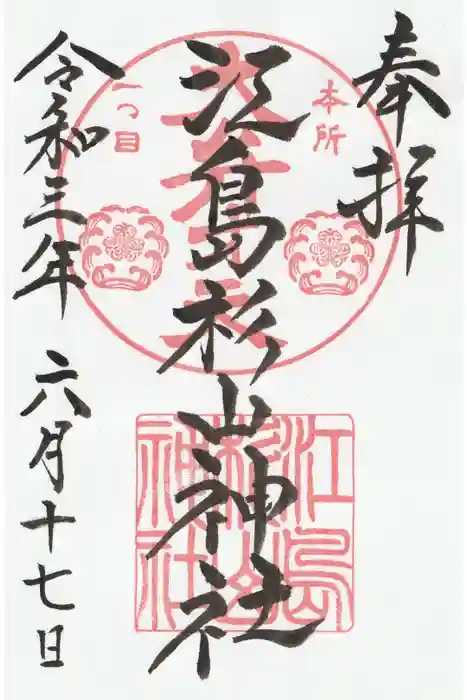 奉拝
本所
一つ目
江島杉山神社
江島杉山神社
令和三年 六月十七日